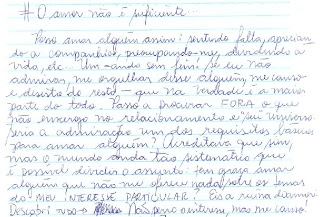 # O amor não é suficiente...
Posso amar alguém assim: sentindo falta, aprecian-
do a companhia, preocupando-me, dividindo a
vida, etc. Um-ando sem fim! Se eu não
admirar, me orgulhar desse alguém, me canso
e desisto do resto - que na verdade é a maior
parte do todo. Passo a procurar FORA o que
não enxergo no relacionamento e seu universo.
Seria a admiração um dos requisitos básicos
para amar alguém? Acreditava que sim,
mas o mundo anda tão sistemático que
é possível dividir o assunto: tem graça amar
alguém que não me oferece nada sobre os temas
do MEU INTERESSE PARTICULAR? Eis a ruína diamos.
Descobri que o Não para outras, mas me canso